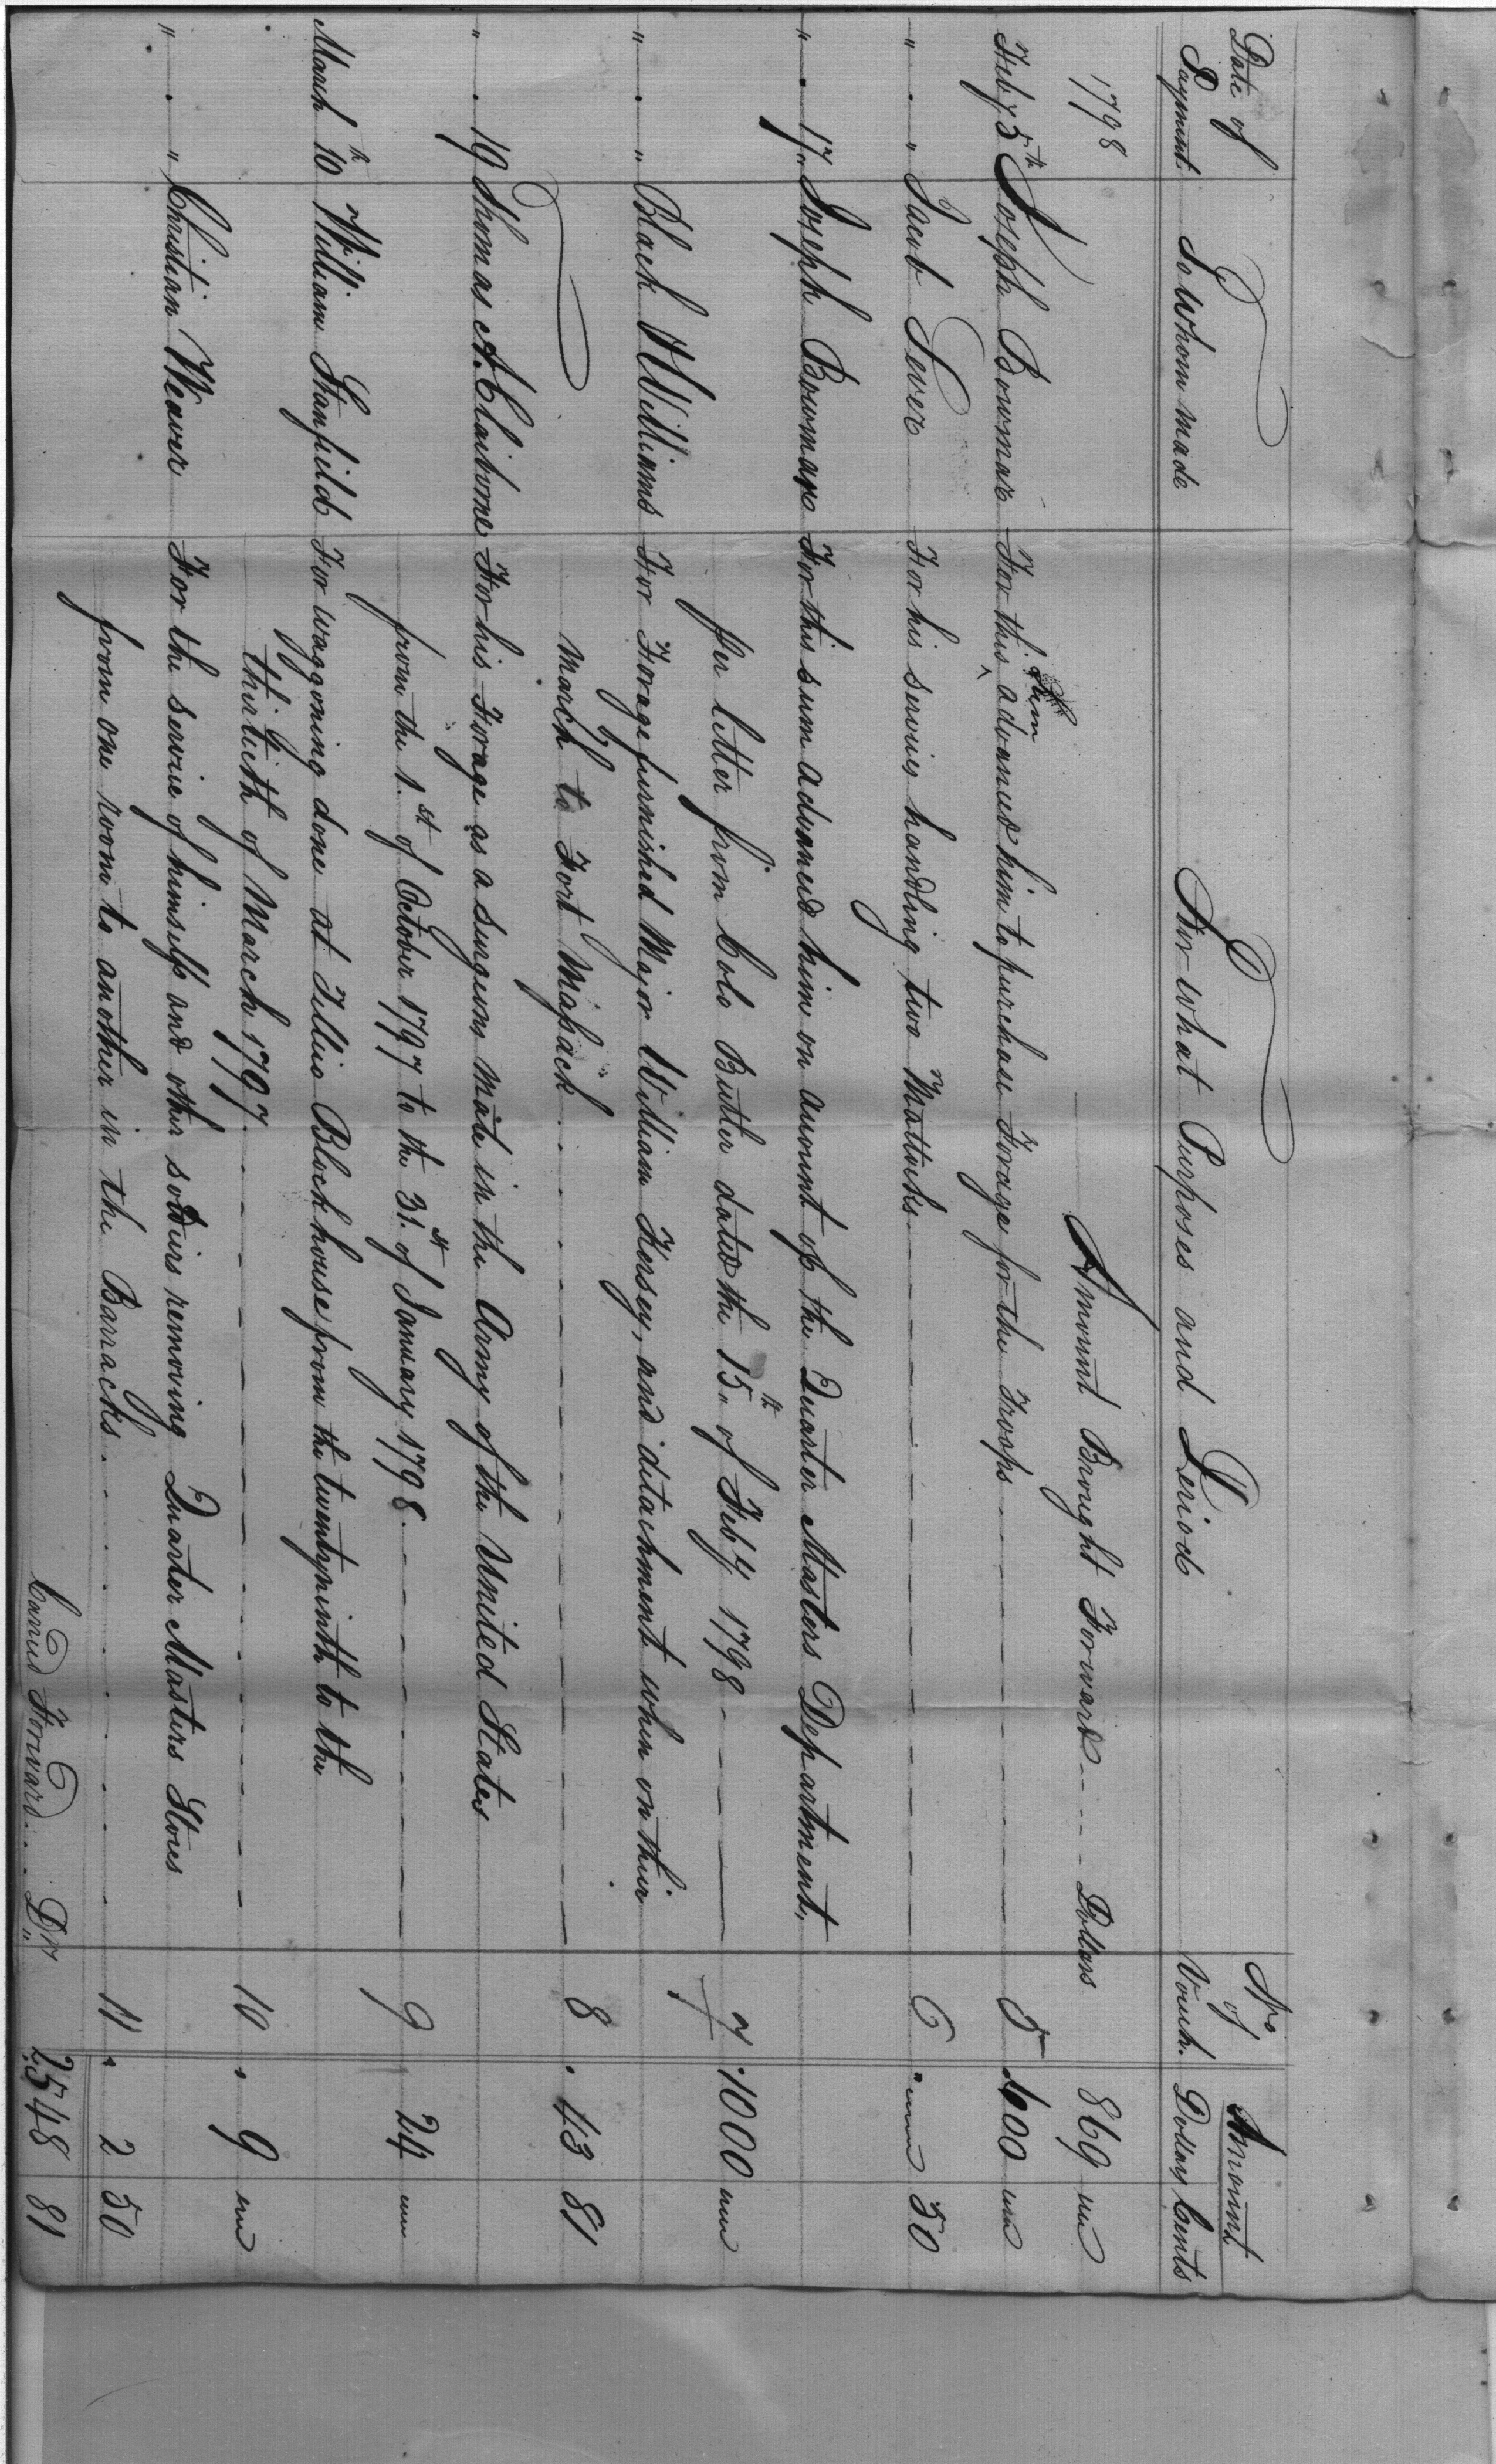 Date of Payment To Whom made For what Purposes and Period No of Vouch. Amount Dollars Cents
1798 Amount Brought Forward - - - - Dollars 869 "
Feby 5th Joseph Bowmar For this Sum advanced him to purchase Forage for the Troops 5 600 "
" . " Jacob Sever For his services handling two Mattocks 6 " 50
" . 17. Joseph Bowmar For this sum advanced him on account of the Quarter Masters Department,
per letter from Colo Butler dated the 15th of Feby 1798 7 1000 "
" . " Black Williams For Forage furnished Major William Kersey, and detachment when on their
march to Fort Massack 8 . 43 81
" . 19 Thomas A. Claiborne For his Forage as a surgeons mate in the Army of the United States
from the 1st of October 1797 to the 31st of January 1798 9 24 "
March 10th William Stanfield For waggoning done at Tellico Blockhouse from the twentyninth to the
thirtieth of March 1797. 10 . 9 "
" . " Christian Weaver For the service of himself and other soldiers removing Quarter Masters Stores
from one room to another in the Barracks 11 . 2 50
Carried Forward . . . Drs 2548 81